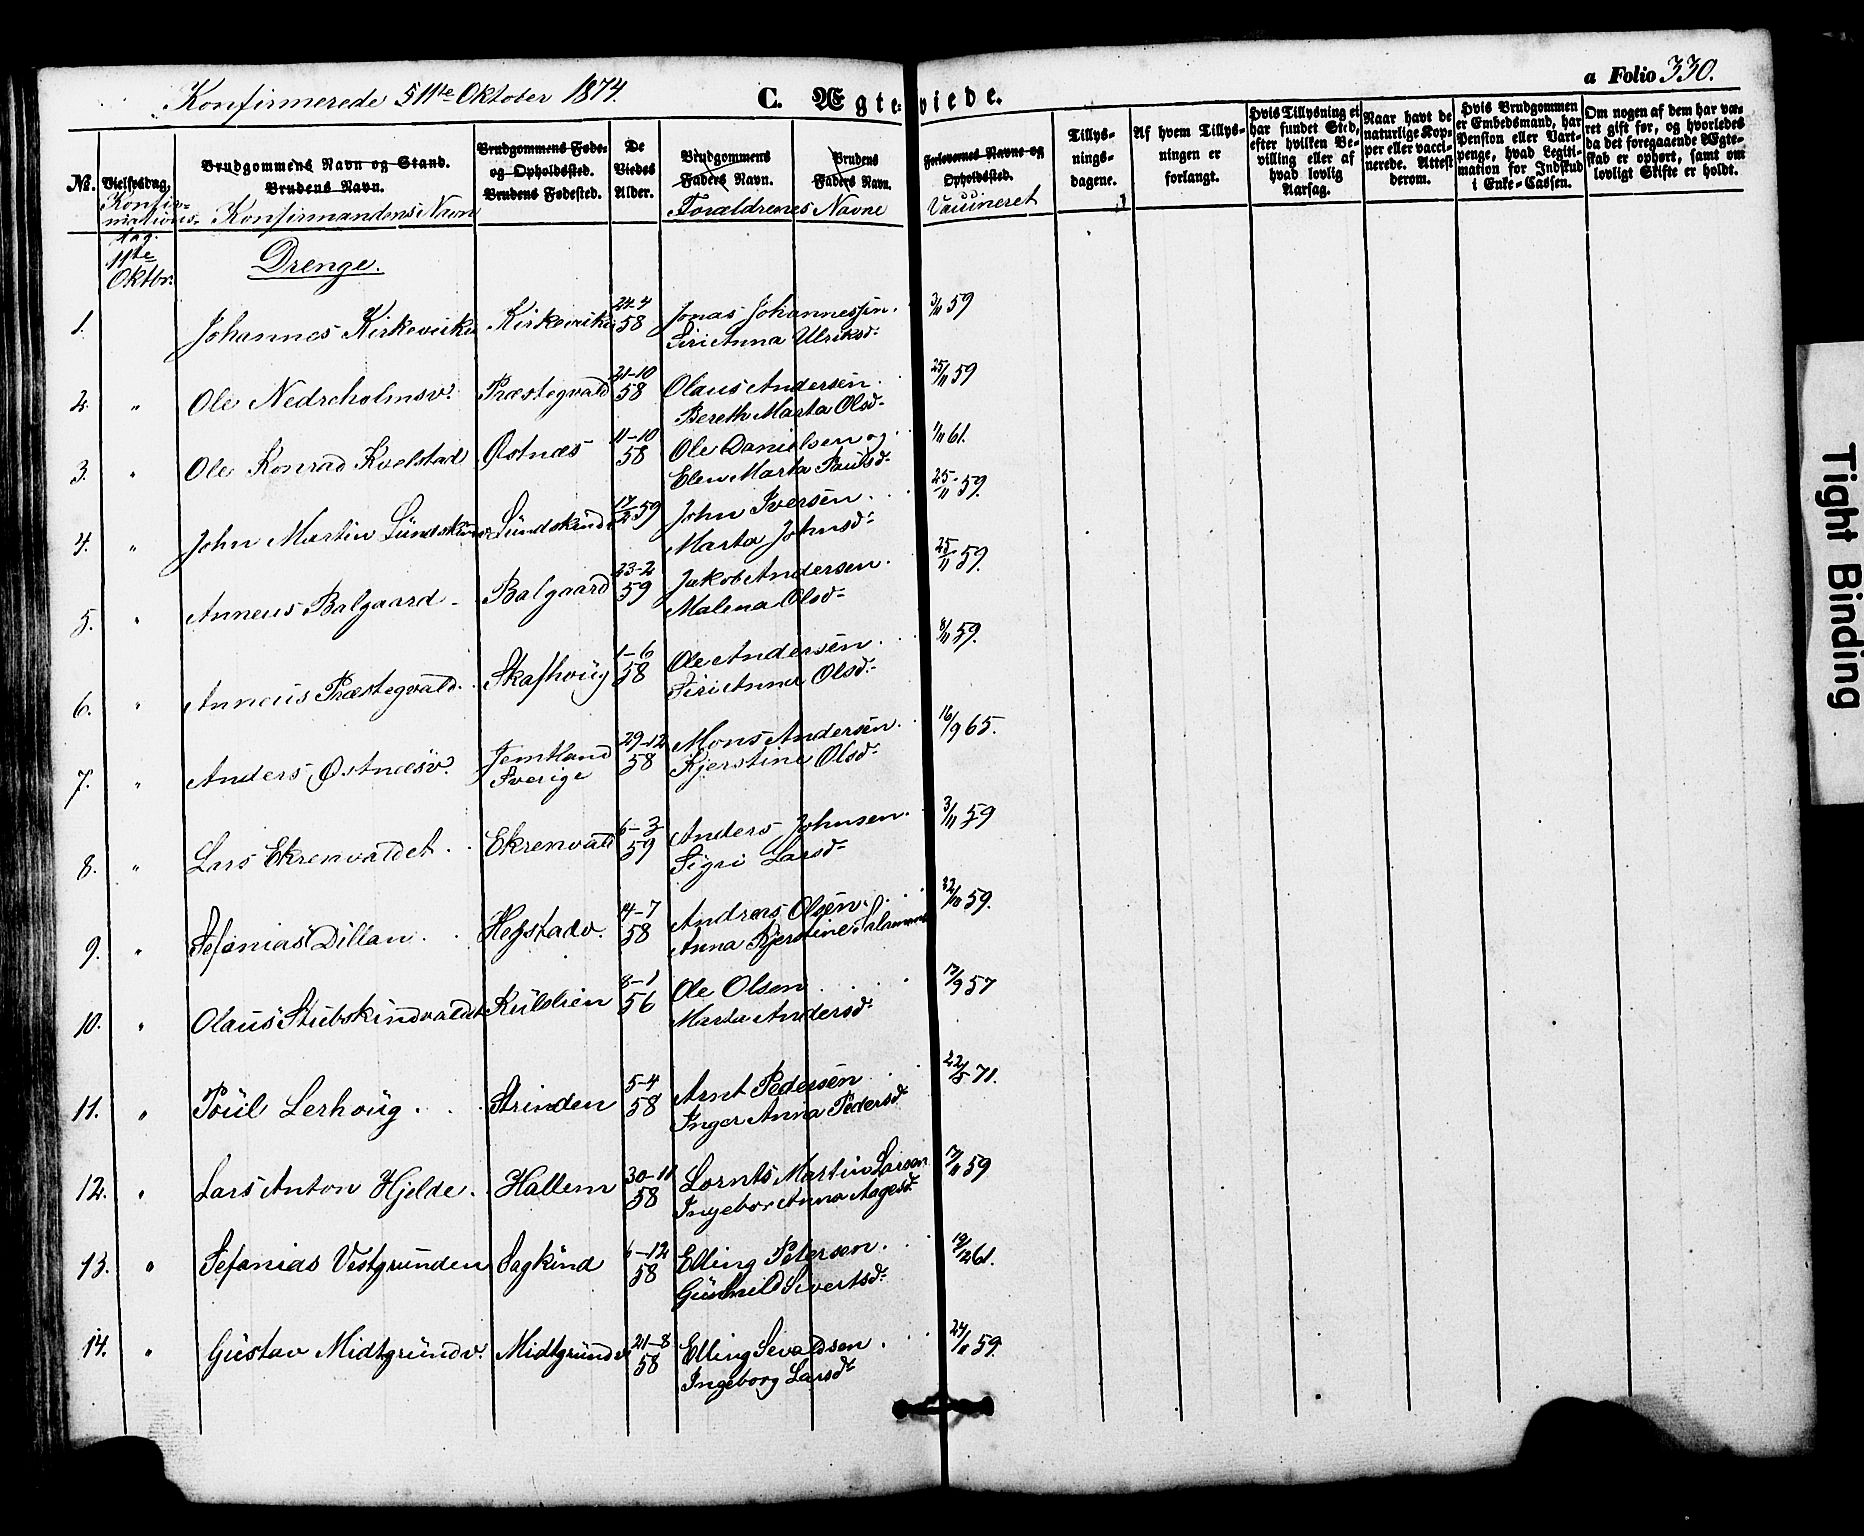 Konfirmerede 11te Oktober 1874.
C. Ægteviede.
a Folio 330.
Nr.
Vielsesdag.
Konfirmations-
dag.
Brudgommens Navn og Stand.
Brudens Navn.
Konfirmandens Navn
Brudgommens Føde-
og Opholdssted.
Brudens Fødested.
De
Viedes
Alder.
Brudgommens
Faders Navn.
Brudens
Faders Navn.
Forældrenes Navne
Forlovernes Navne og
Opholdssted.
Vaccineret
Tillys-
nings-
dagene.
Af hvem Tillys-
ningen er
forlangt.
Hvis Tillysning ei
har fundet Sted,
efter hvilken Be-
villing eller af
hvad lovlig
Aarsag.
Naar havt de
naturlige Kop-
per eller vacci-
nerede. Attest
derom.
Hvis Brudgommen
er Embedsmand, har
Pension eller Vart-
penge, hvad Legiti-
mation for Indskud
i Enke-Cassen.
Om nogen af dem har væ-
ret gift før, og hvorledes
da det foregaaende Ægte-
skab er ophørt, samt om
lovligt Skifte er holdt.
11te
Oktbr.
Drenge.
1. Johannes Kirkevirke Kirkevirke 24-4 58 Jonas Johannessen. 3/11 59
Siri Anna Ulriksd.
2. " Ole Nedreholmsv. Præstegvald 21-10 58 Olaus Andersen. 25/11 59
Bereth Marta Olsd.
3. " Ole Konrad Kvelstad Østnæs 11-10 58 Ole Danielsen og 1/11 61.
Elen Marta Paulsd.
4. " John Martin Sundskind 17/2 59 John Iversen. 25/11 59.
Marta Johnsd.
5. " Anneus Balgaard Balgaard 23-2 59 Jakob Andersen. 25/11 59.
Malena Olsd.
6. " Anneus Præstegvald. Skafhoug 1-6 58 Ole Andersen. 8/11 59.
Siri Anna Olsd.
7. " Anders Østnæsv. Jemtland 29-12 58 Mons Andersen. 16/9 65.
Sverige Kjerstine Olsd.
8. " Lars Ekrenvaldet. Ekrenvald 6-3 59 Anders Johnsen. 3/11 59
Sigri Larsd.
9. " Sefanias Dillan. Hegstadv. 4-7 58 Andreas Olsen. 22/10 59.
Anna Kjerstine
10. " Olaus Stubskindvaldet 8-1 56 Ole Olsen 17/9 57
Marta Andersd.
11. " Poul Lerhoug. Strinden 5-4 58 Arnt Pedersen 22/5 71.
Inger Anna Pedersd.
12. " Lars Anton Hjelde. Hallem 30-11 58 Lornts Martin Larsen 17/11 59
Ingebor Anna Aagesd.
13. " Sefanias Vestgrunden Sagkind 6-12 58 Elling Petersen. 19/12 61.
Gunhild Sivertsd.
14. " Gustav Midtgrundv. Midtgrundv 21-8 58 Elling Sevaldsen. 24/11 59.
Ingeborg Larsd.
Tight Binding